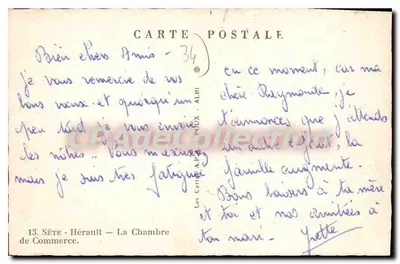 CARTE POSTALE
34
Bien chers Amis -
je vous remercie de vos
bons vœux et quoiqu'un
peu tard je vous envoie
les nôtres. Vous m'excuserez
mais je suis très fatiguée
13. SÈTE - Hérault — La Chambre
de Commerce.
Les Cartes A.P.A. POUX - ALBI
en ce moment, car ma
chère Raymonde, je
t'annonces que j'attends
un autre enfant, la
famille augmente.
Bons baisers à ta mère
et toi et nos amitiés à
ton mari - Yvette